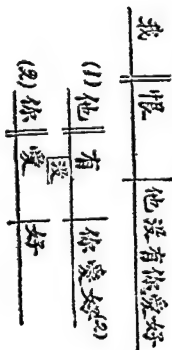 我 恨 他没有你愛好
(1) 他 有 你愛好(2)
没
(2) 你 愛 好